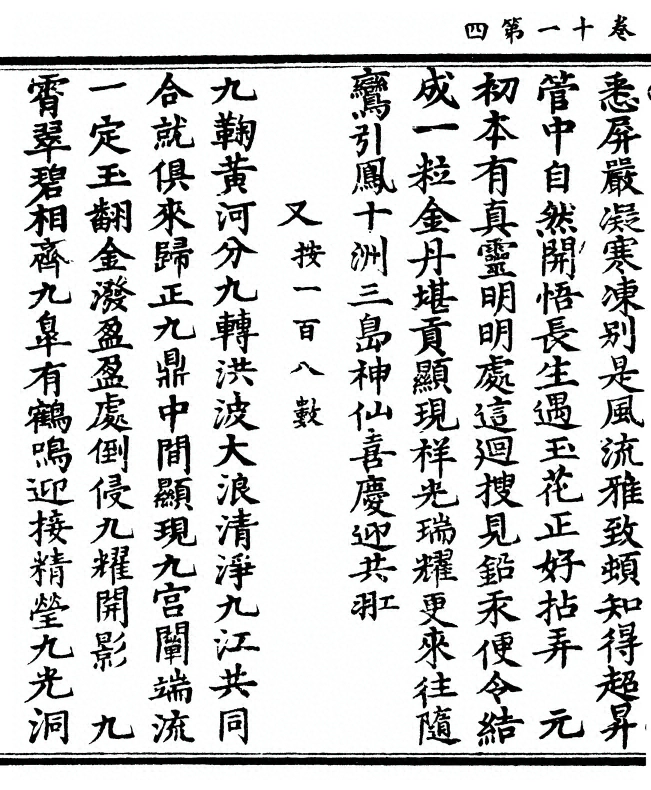 卷十一第四
悉屏嚴凝寒凍別是風流雅致頓知得超昇
管中自然開悟長生遇玉花正好拈弄　元
初本有真靈明明處這迴搜見鉛汞便令結
成一粒金丹堪貢顯現祥光瑞耀更來往隨
鸞引鳳十洲三島神仙喜慶迎共羾
又按一百八數
九鞠黃河分九轉洪波大浪清淨九江共同
合就俱來歸正九鼎中間顯現九宮闡端流
一定玉翻金潑盈盈處倒侵九耀開影　九
霄翠碧相齊九臯有鶴鳴迎接精瑩九光洞